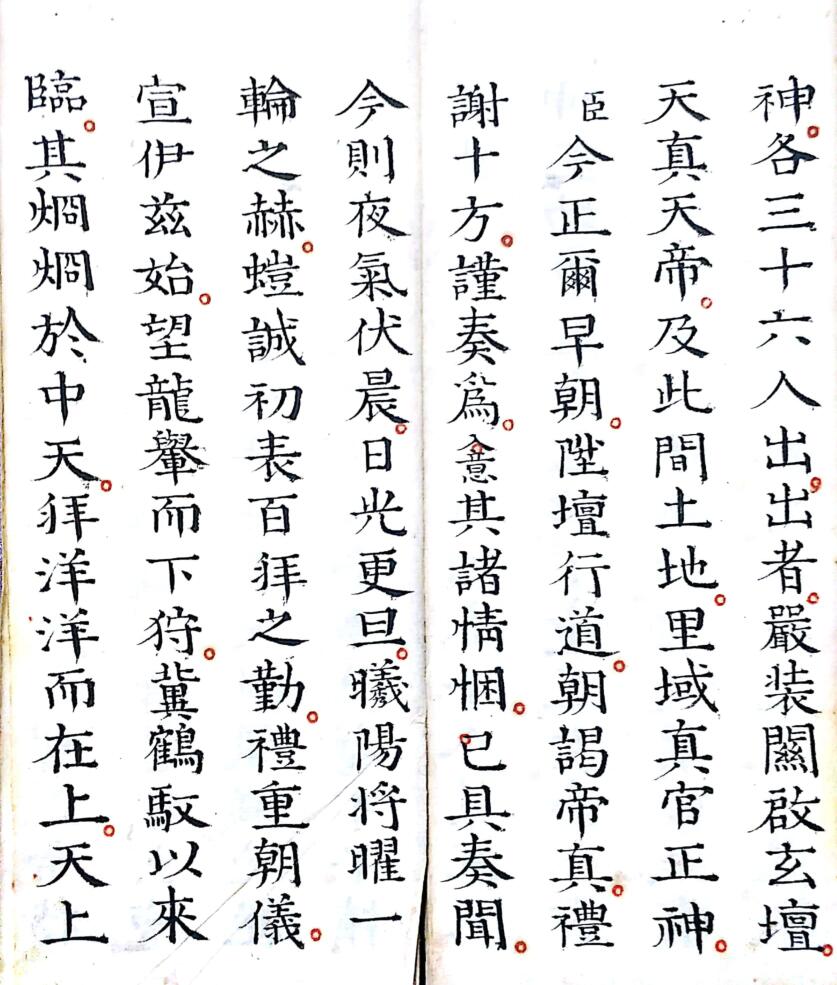 神。各三十六人出。出者。嚴装關啟玄壇。
天真天帝。及此間土地。里域真官正神。
臣今正爾早朝。陞壇行道。朝謁帝真。禮
謝十方。謹奏為。入意其諸情悃。已具奏聞。
今則夜氣伏晨。日光更旦。曦陽将曜一
輪之赫。螘誠初表百拜之勤。禮重朝儀。
宣伊茲始。望龍轝而下狩。冀鶴馭以來
臨。其烱烱於中天。拜洋洋而在上。天上